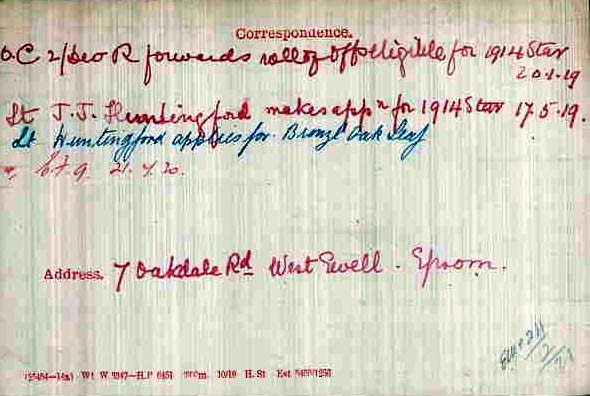 Correspondence.
O.C 2/Leo R forwards roll of Offs eligible for 1914 Star
20.1.19
Lt J. J. Huntingford makes appn for 1914 Star 17.5.19.
Lt Huntingford applies for Bronze Oak Leaf
21.7.20.
Address. 7 Oakdale Rd West Ewell. Epsom.
Wt W 9347—H.P 10/19 H. St